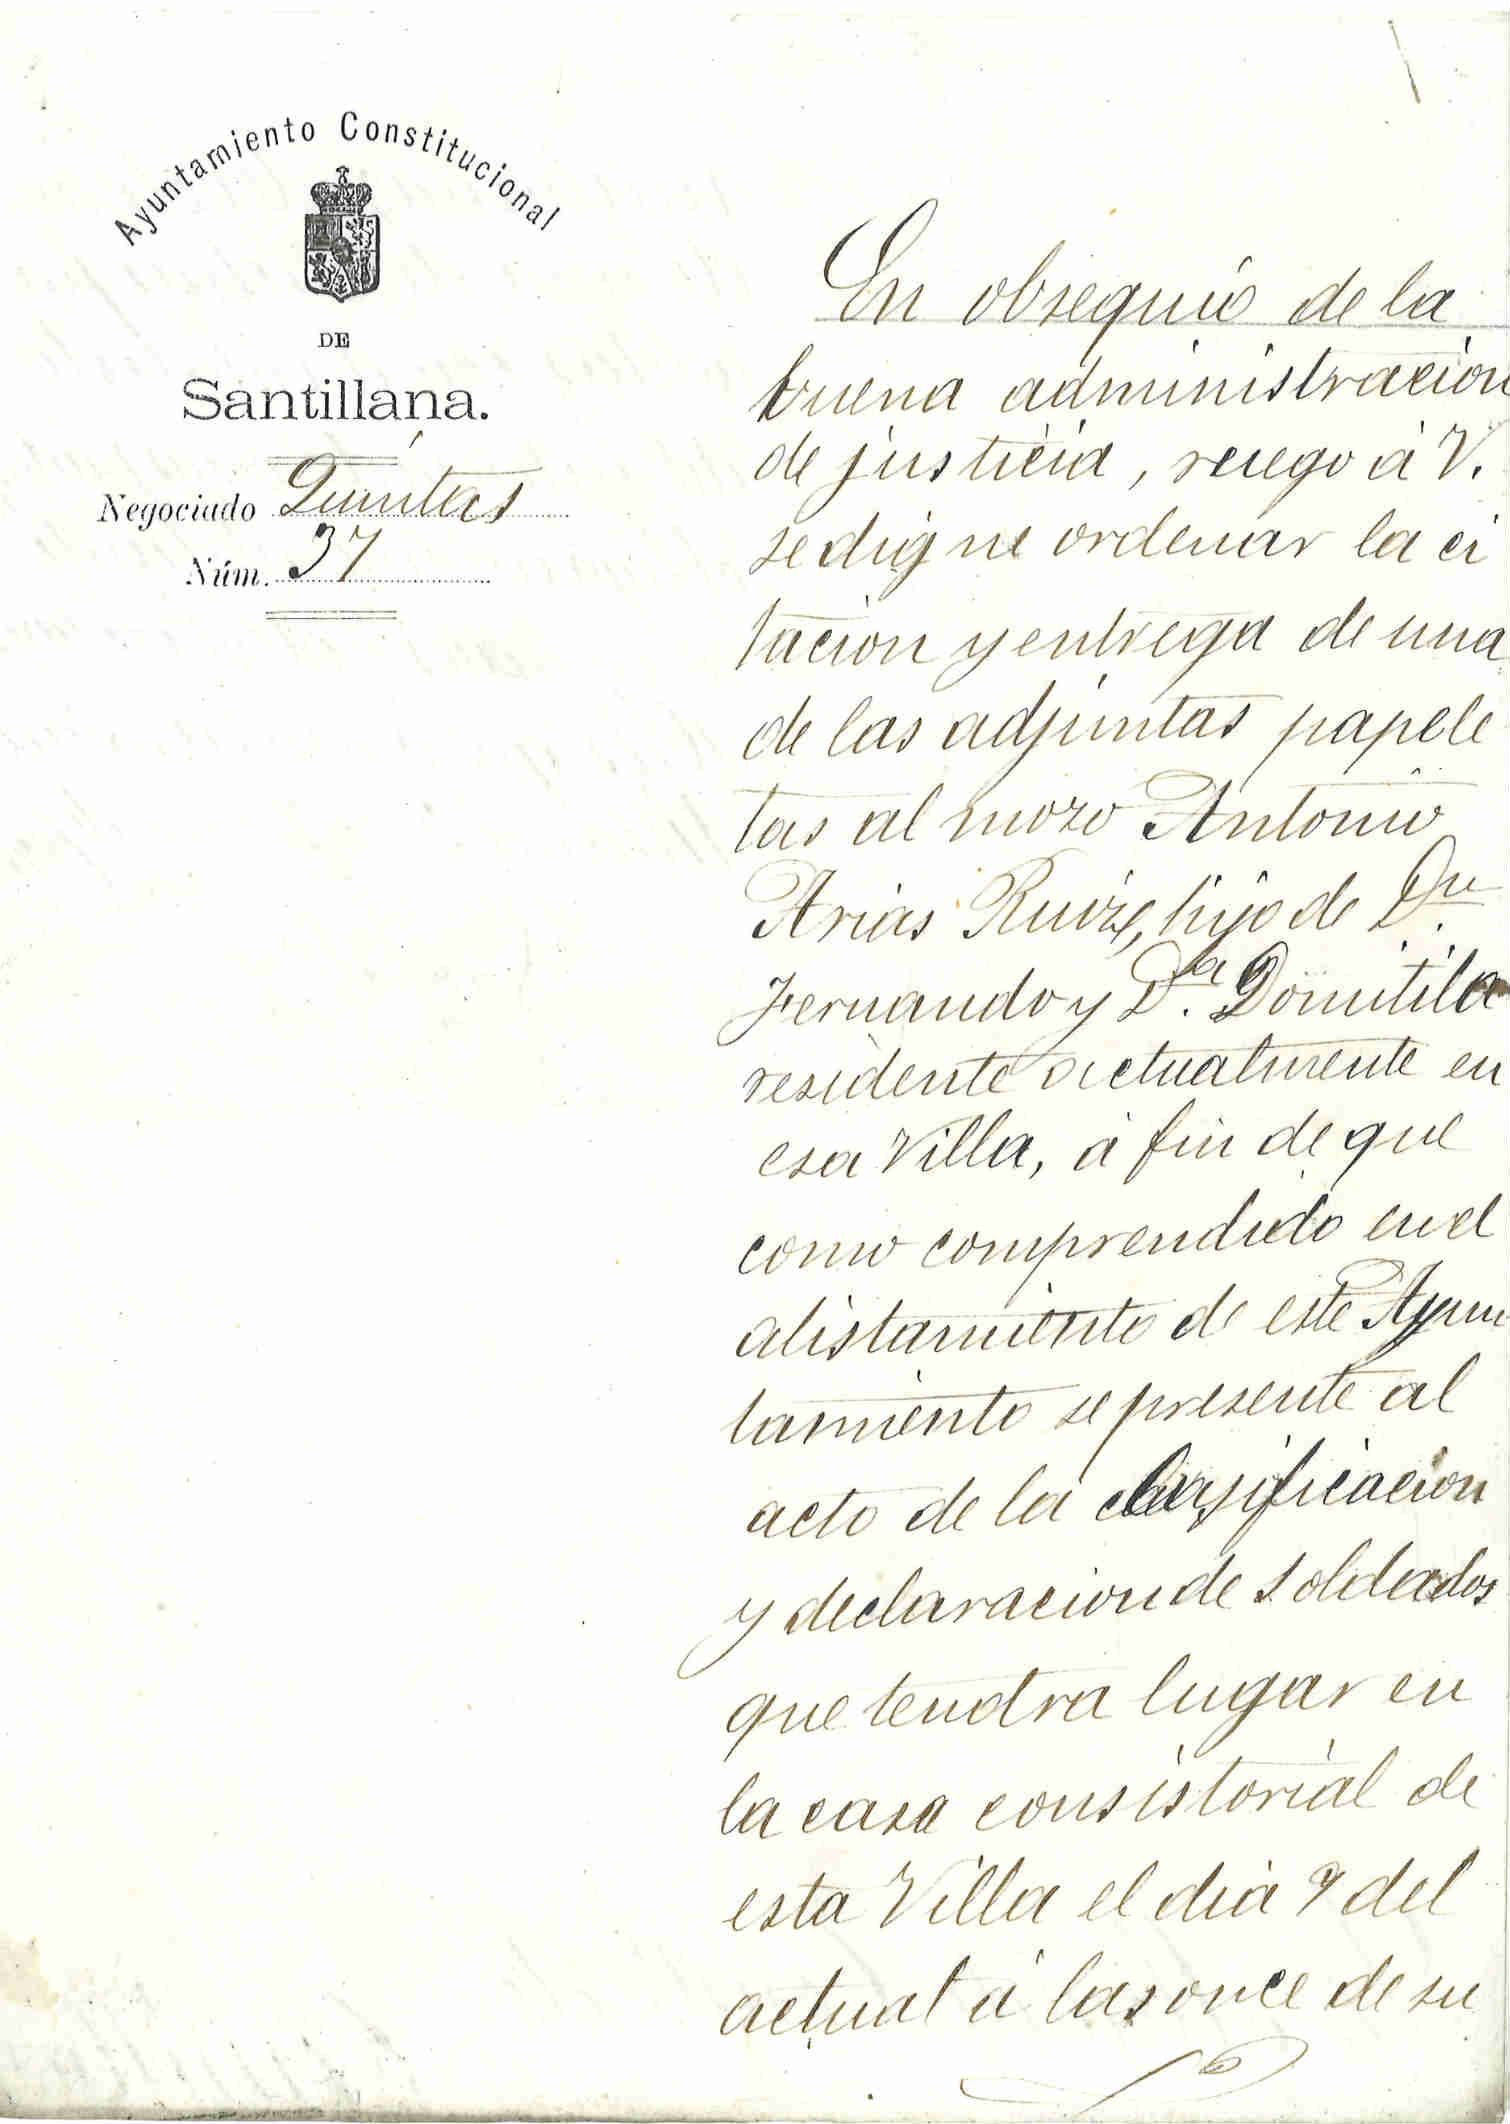 Ayuntamiento Constitucional
DE
Santillana.
Negociado Quintas
Núm. 37
En obsequio de la
buena administracion
de justicia, ruego á V.
se digne ordenar la ci
tacion y entrega de una
de las adjuntas papele
tas al mozo Antonio
Arias Ruiz, hijo de Dn.
Fernando y Da. Domitila
residente actualmente en
esa Villa, á fin de que
como comprendido en el
alistamiento de este Ayun
tamiento se presente al
acto de la clasificacion
y declaracion de soldados
que tendra lugar en
la casa consistorial de
esta Villa el dia 9 del
actual á las once de su